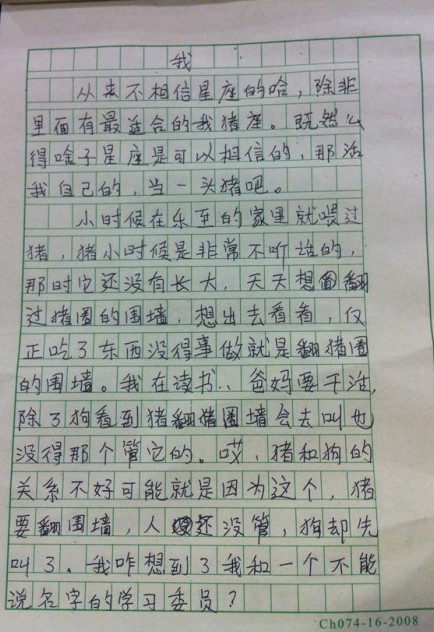 我
从来不相信星座的哈，除非
里面有最适合的我猪座。既然么
得啥子星座是可以相信的，那活
我自己的，当一头猪吧。
小时候在乐至的家里就喂过
猪，猪小时候是非常不听话的，
那时它还没有长大，天天想翻
过猪圈的围墙，想出去看看，反
正吃了东西没得事做就是翻猪圈
的围墙。我在读书、爸妈要干活，
除了狗看到猪翻猪圈墙会去叫也
没得那个管它的。哎，猪和狗的
关系不好可能就是因为这个，猪
要翻围墙，人还没管，狗却先
叫了。我咋想到了我和一个不能
说名字的学习委员？
Ch074-16-2008